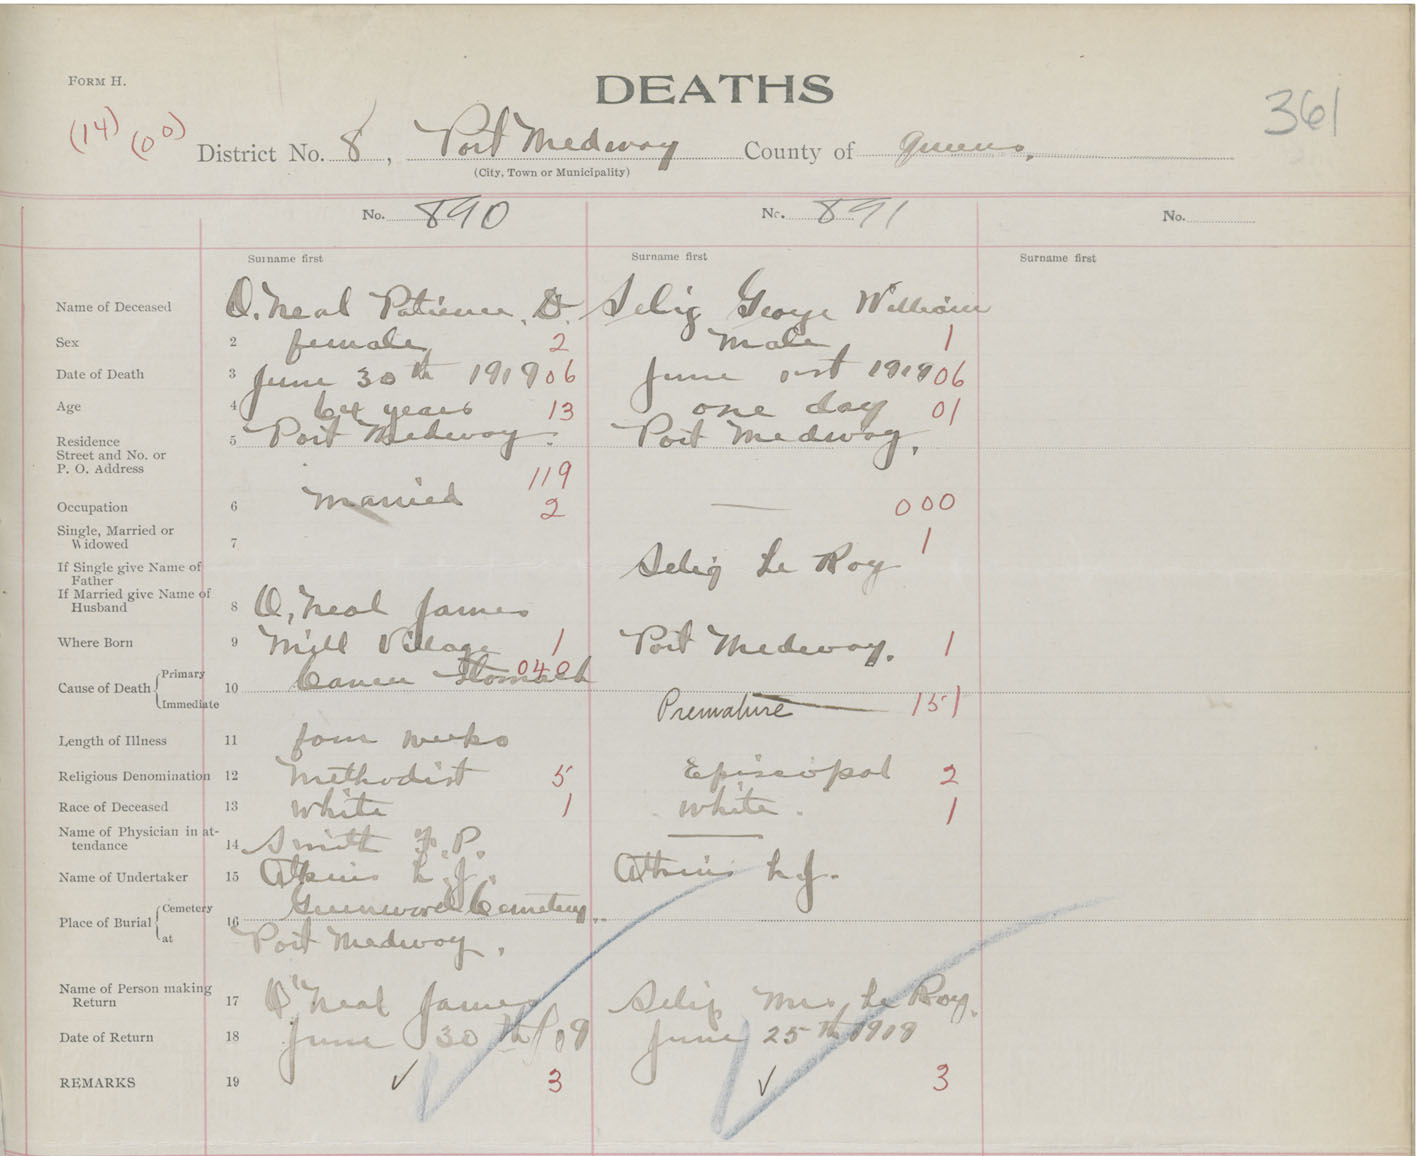 FORM H.
DEATHS
361
(14) (00)
District No. 8, Port Medway County of Queens.
(City, Town or Municipality)
No. 890 No. 891 No.
Surname first Surname first Surname first
Name of Deceased O.Neal Patience. D. Selig George William
Sex 2 female 2 Male 1
Date of Death 3 June 30th 1918 06 June 1918 06
Age 4 64 years 13 one day 01
Residence 5 Port Medway. Port Medway.
Street and No. or
P. O. Address
119
Occupation 6 Married 2 — 000
Single, Married or
Widowed 7 1
If Single give Name of Selig Le Roy
Father
If Married give Name of
Husband 8 O,Neal James
Where Born 9 Mill Village 1 Port Medway. 1
Cause of Death Primary 10 Cancer Stomach 040
Immediate Premature — 151
Length of Illness 11 four weeks
Religious Denomination 12 Methodist 5 Episcopal 2
Race of Deceased 13 White 1 White. 1
Name of Physician in at-
tendance 14 Smith F. P. —
Name of Undertaker 15 Atkins L. J. Atkins L J.
Place of Burial Cemetery 16 Greenwood Cemetery..
at Port Medway.
Name of Person making
Return 17 O'Neal James Selig Mrs Le Roy.
Date of Return 18 June 30th/18 June 25th 1918
REMARKS 19 ✓ 3 ✓ 3